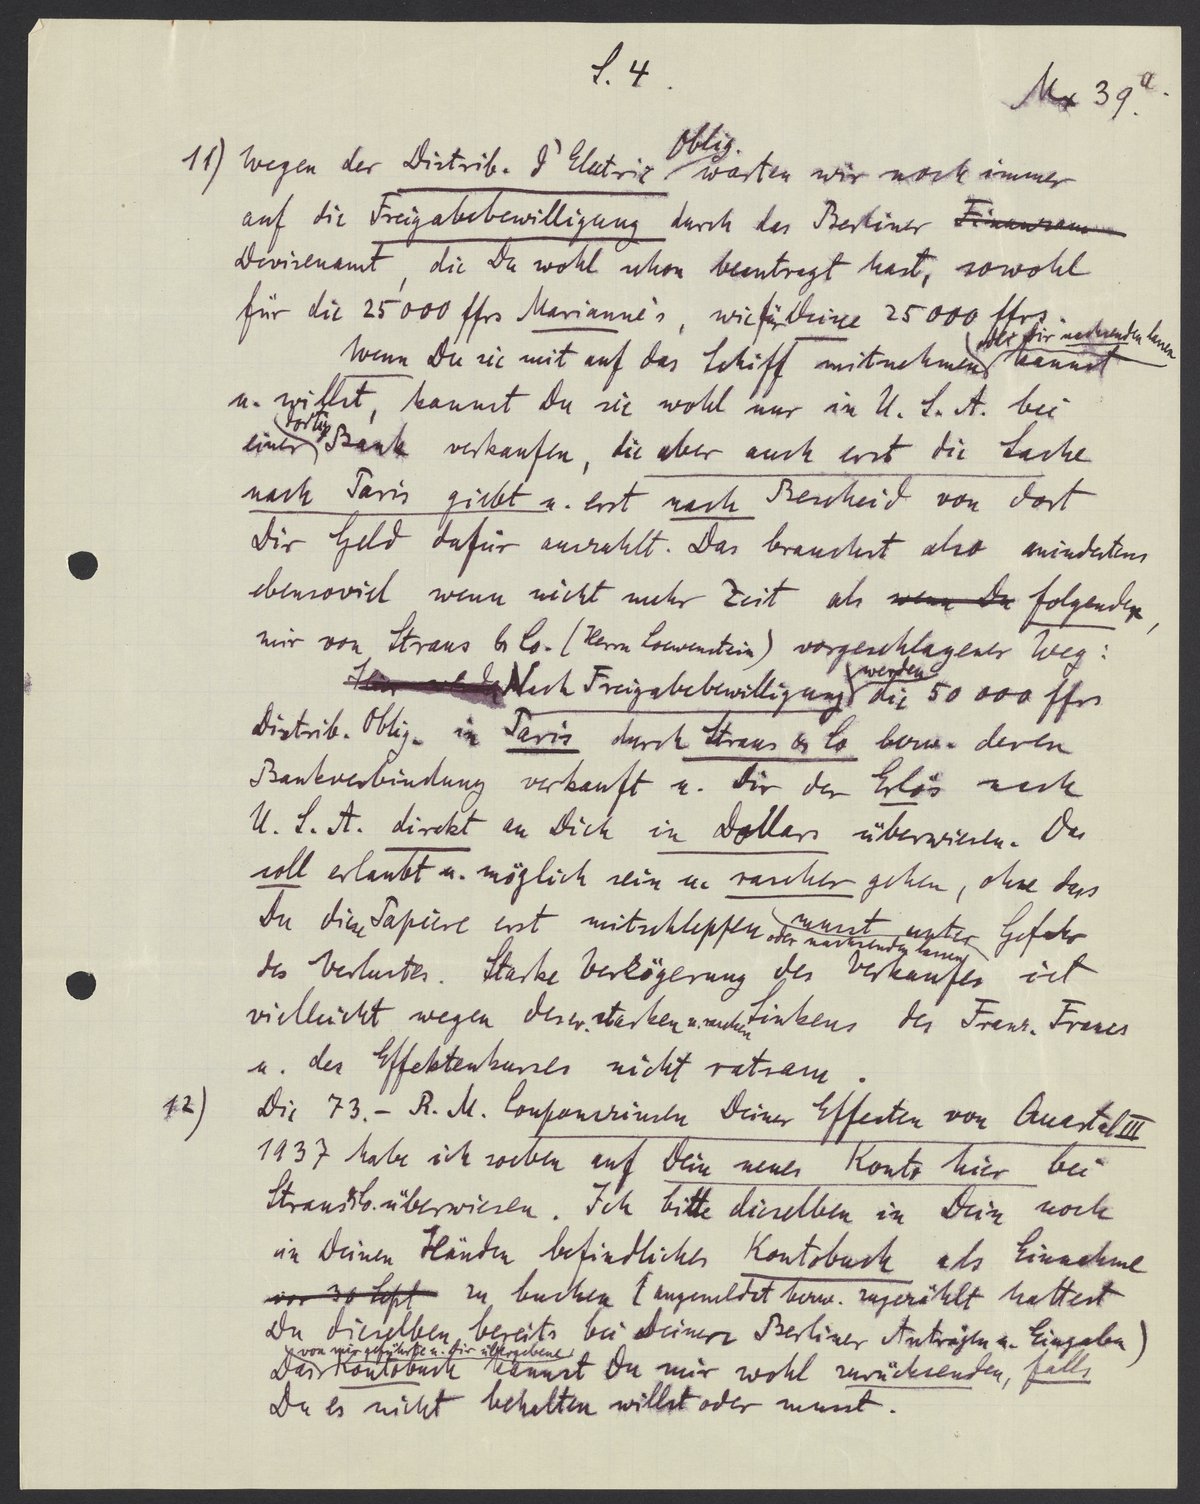 S. 4.
Mx 39a.
11) Wegen der Distrib. d'Electric Oblig. warten wir noch immer
auf die Freigabebewilligung durch das Berliner Finanzam
Devisenamt, die Du wohl schon beantragt hast, sowohl
für die 25'000 ffrs Marianne's, wie für Deine 25000 ffrs.
Wenn Du sie mit auf das Schiff mitnehmen oder Dir nachsenden lassen kannst
u. willst, kannst Du sie wohl nur in U. S. A. bei
einer dortig. Bank verkaufen, die aber auch erst die Sache
nach Paris giebt u. erst nach Bescheid von dort
Dir Geld dafür auszahlt. Das brauchst also mindestens
ebensoviel wenn nicht mehr Zeit als wenn Du folgender,
mir von Straus & Co. (Herrn Loewenstein) vorgeschlagener Weg:
Nach Freigabebewilligung werden die 50 000 ffrs
Distrib. Oblig. in Paris durch Straus & Co bezw. deren
Bankverbindung verkauft u. Dir der Erlös nach
U. S. A. direkt an Dich in Dollars überwiesen. Das
soll erlaubt u. möglich sein u. rascher gehen, ohne dass
Du diese Papiere erst mitschleppen oder nachsenden lassen musst unter Gefahr
des Verlustes. Starke Verzögerung des Verkaufes ist
vielleicht wegen des ev. starken u. raschen Sinkens des Franz. Francs
u. des Effektenkurses nicht ratsam.
12) Die 73.- R. M. Couponszinsen Deiner Effecten von Quartal III
1937 habe ich soeben auf Dein neues Konto hier bei
Straus & Co. überwiesen. Ich bitte dieselben in Dein noch
in Deinen Händen befindliches Kontobuch als Einnahme
vor 30 Sept zu buchen (angemeldet bezw. zugezählt hattest
Du dieselben bereits bei Deinerz Berliner Anträgen u. Eingaben)
Das von mir geführte u. Dir übergebene Kontobuch kannst Du mir wohl zurücksenden, falls
Du es nicht behalten willst oder musst.